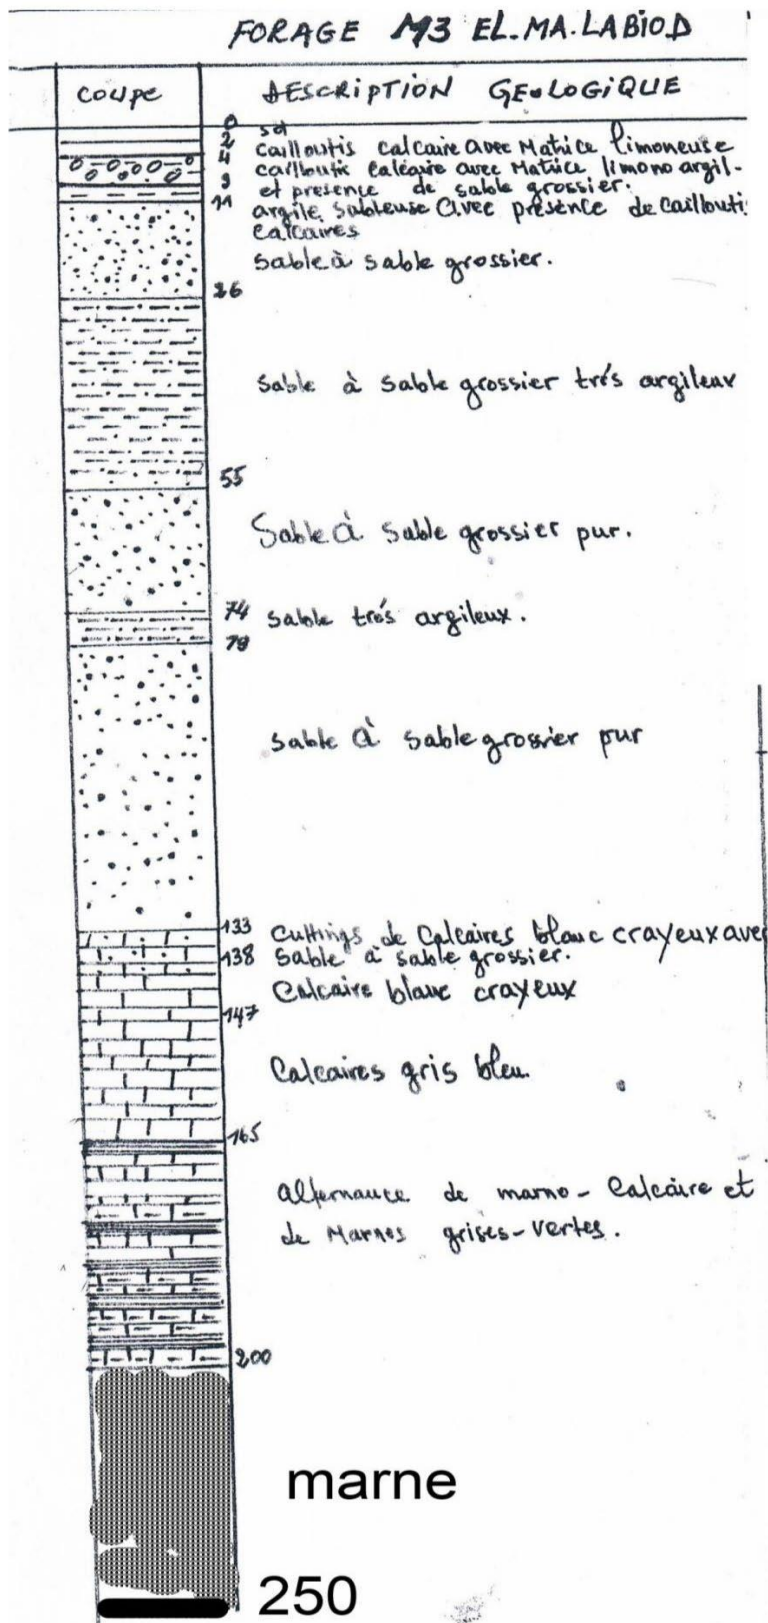 FORAGE M3 EL.MA.LABIOD
COUPE
DESCRIPTION GEOLOGIQUE
0 sol
2 cailloutis calcaire avec Matrice limoneuse
4 cailloutis calcaire avec Matrice limono argil-
9 et presence de sable grossier.
11 argile sableuse avec présence de caillouti
calcaires
sable à sable grossier.
26
sable à sable grossier trés argileux
55
Sable à sable grossier pur.
74 sable trés argileux.
79
sable à sable grossier pur
133 Cuttings de Calcaires blanc crayeux avec
138 sable à sable grossier.
Calcaire blanc crayeux
147
Calcaires gris bleu
165
alternance de marno-Calcaire et
de Marnes grises-vertes.
200
marne
250